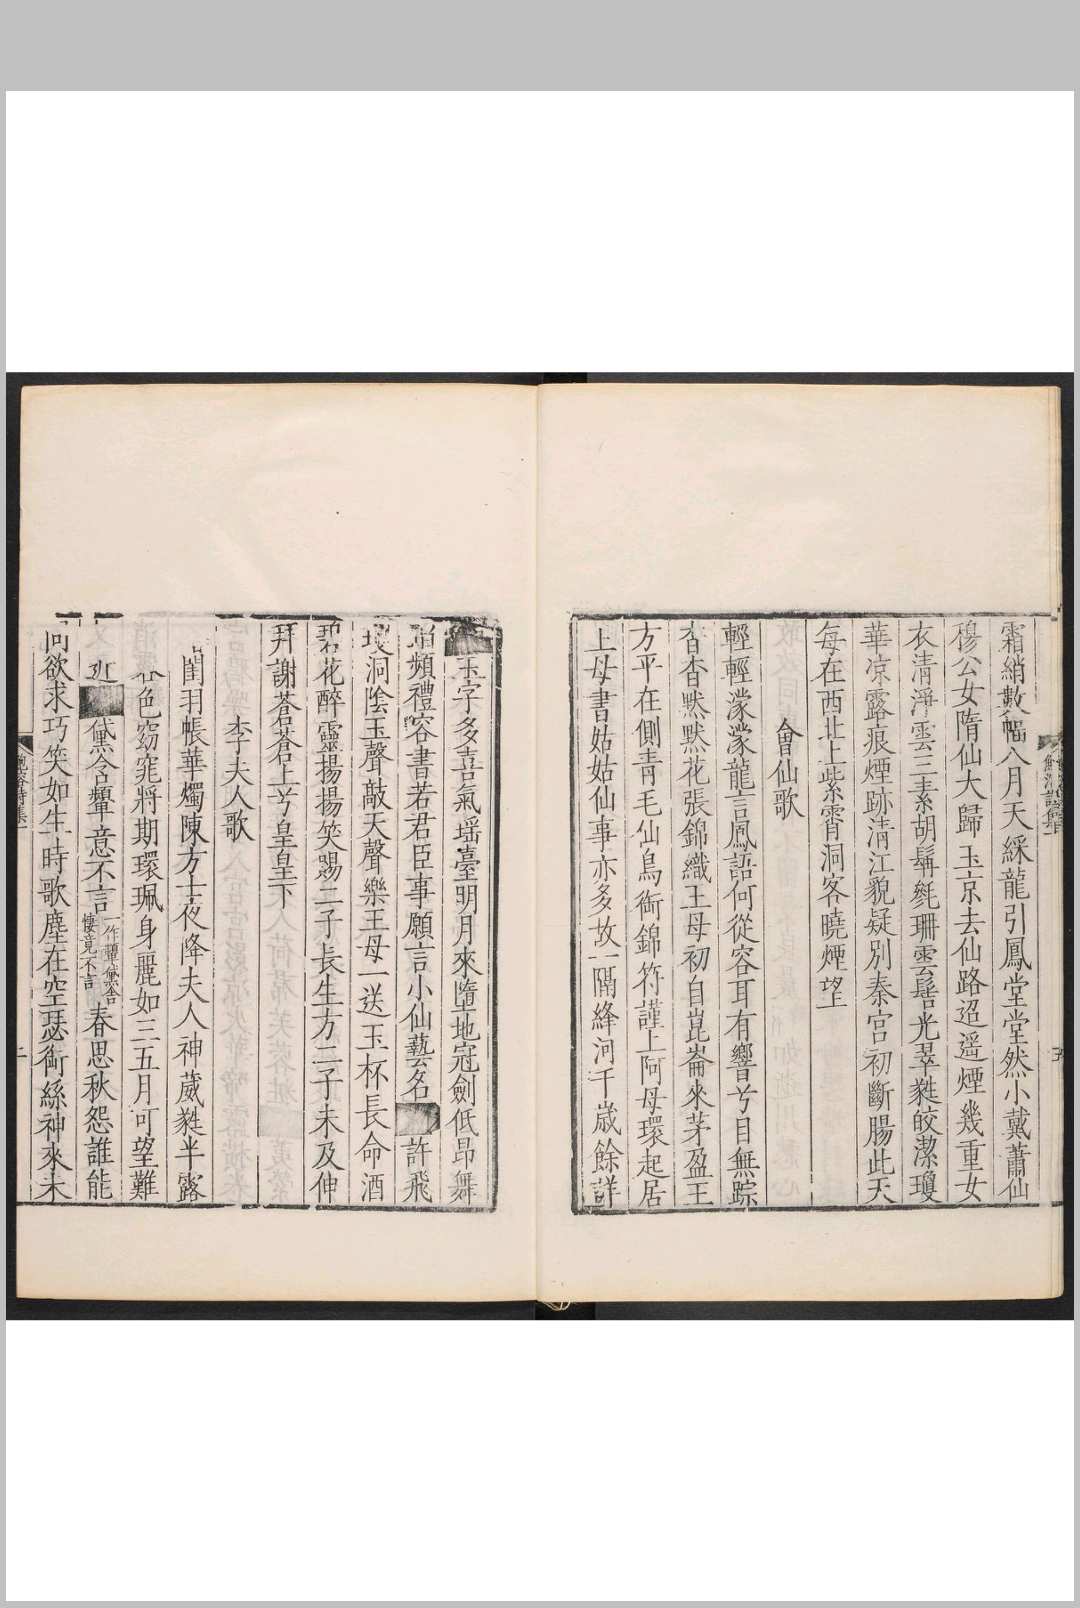 霜綃數幅八月天綵龍引鳳堂堂然小戴蕭仙
穆公女隋仙大歸玉京去仙路迢遥煙幾重女
衣清淨雲三素胡髯毿珊雲髻光翠蕤皎潔瓊
華凉露痕煙跡清江貌疑別秦宮初斷腸此天
每在西北上紫霄洞客曉煙望
會仙歌
輕輕濛濛龍言鳳語何從容耳有響兮目無踪
杳杳默默花張錦織王母初自崑崙來茅盈王
方平在側青毛仙鳥銜錦符謹上阿母環起居
上母書姑姑仙事亦多故一隔絳河千歲餘詳
玉字多喜氣瑶臺明月來墮地冠劍低昂舞
蹈頻禮容書若君臣事願言小仙藝名許飛
瓊洞陰玉聲敲天聲樂王母一送玉杯長命酒
碧花醉靈揚揚笑賜二子長生方二子未及伸
拜謝蒼蒼上兮皇皇下
李夫人歌
閨羽帳華燭陳方士夜降夫人神葳蕤半露
色窈窕將期環珮身麗如三五月可望難
近黛含顰意不言一作顰黛含悽竟不言春思秋怨誰能
問欲求巧笑如生時歌塵在空瑟銜絲神來未
鮑溶詩集一